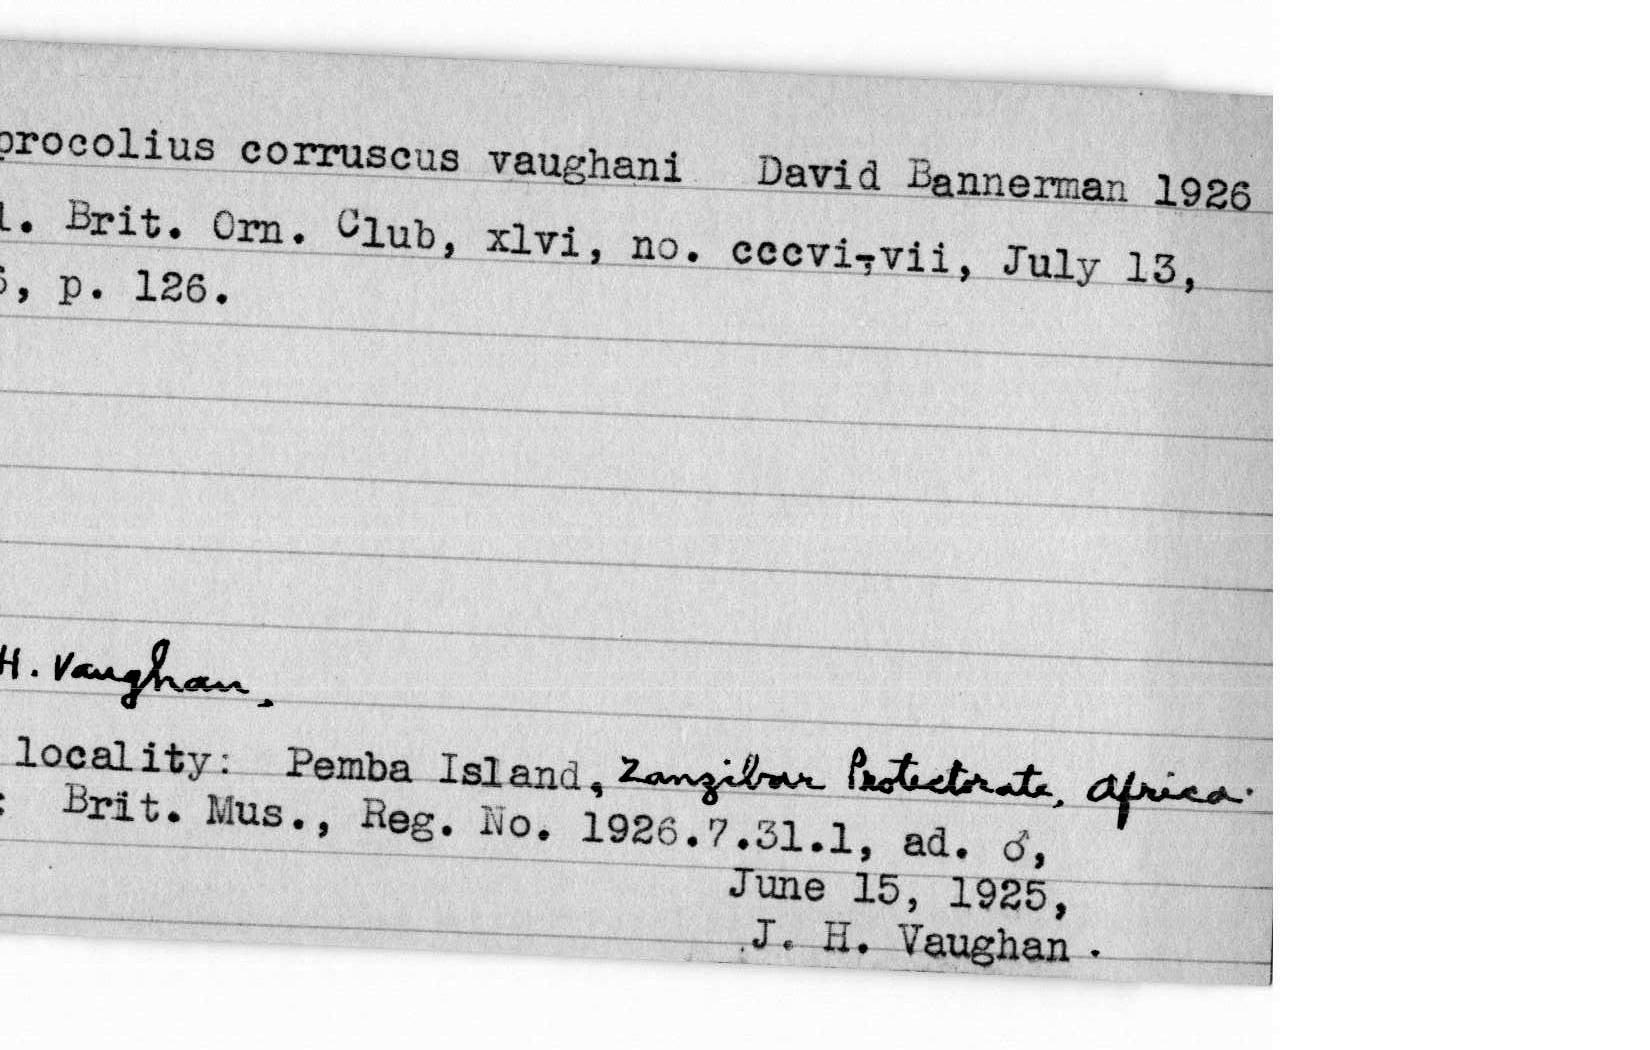 procolius corruscus vaughani David Bannerman 1926
l. Brit. Orn. Club, xlvi, no. cccvi-vii, July 13,
6, p. 126.
H. Vaughan,
locality: Pemba Island, Zanzibar Protectorate, Africa.
: Brit. Mus., Reg. No. 1926.7.31.1, ad. ♂,
June 15, 1925,
J. H. Vaughan.